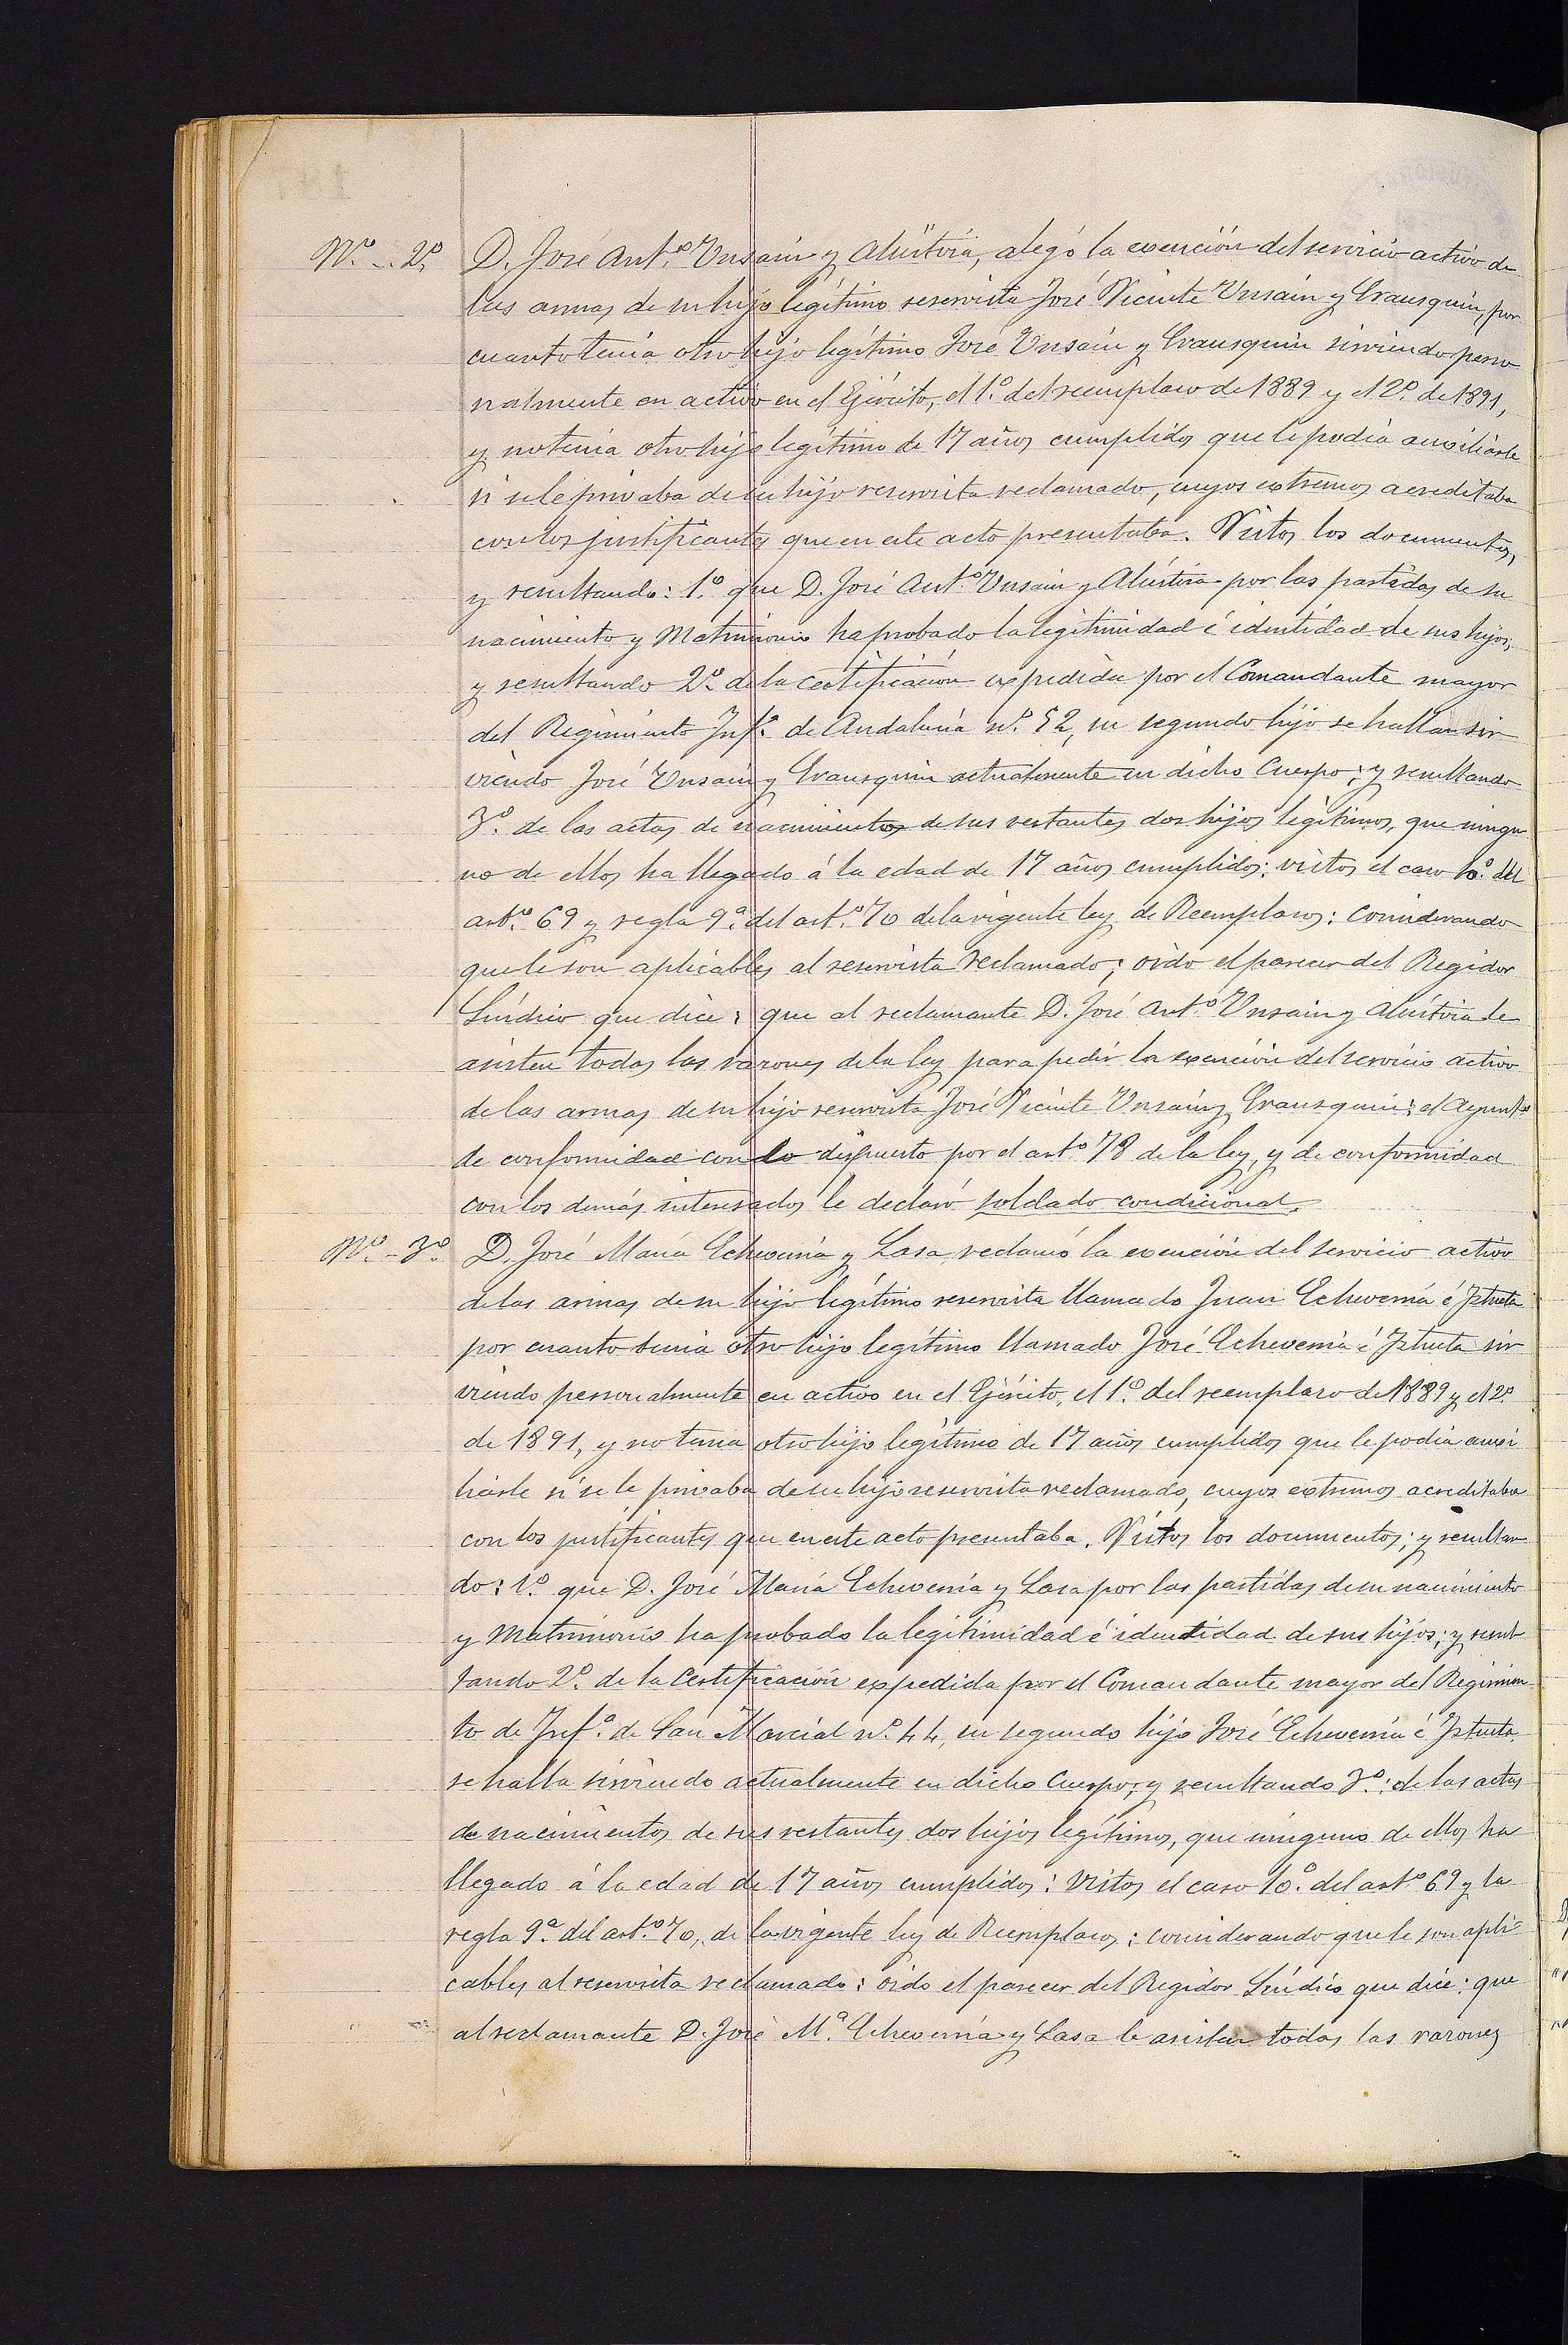 Nº. - 2º. D. José Ant.º Unsain y Alustiza, alegó la exención del servicio activo de
las armas de su hijo legítimo reservista José Vicente Unsain y Erausquin, por
cuanto tenia otro hijo legítimo José Unsain y Erausquin sirviendo perso
nalmente en activo en el Ejército, el 1º. del reemplazo de 1889 y el 2º. de 1891,
y no tenia otro hijo legítimo de 17 años cumplidos que le podia auxiliarle
si se le privaba de su hijo reservista reclamado, cuyos extremos acreditaba
con los justificantes que en este acto presentaba. Vistos los documentos,
y resultando: 1º. que D. José Ant.º Unsain y Alustiza por las partidas de su
nacimiento y Matrimonio ha probado la legitimidad é identidad de sus hijos;
y resultando 2º. de la certificación expedida por el Comandante mayor
del Regimiento Inf.ª de Andalucia nº. 52, su segundo hijo se hallan sir
viendo José Unsain y Erausquin actualmente en dicho Cuerpo; y resultando
3º. de las actas de nacimientos de sus restantes dos hijos legítimos, que ningu
no de ellos ha llegado á la edad de 17 años cumplidos: vistos el caso 10º. del
artº. 69 y regla 9ª. del artº. 70 de la vigente ley de Reemplazos: considerando
que le son aplicables al reservista reclamado; oido el parecer del Regidor
Síndico que dice: que al reclamante D. José Ant.º Unsain y Alustiza le
asisten todas las razones de la ley para pedir la exención del servicio activo
de las armas de su hijo reservista José Vicente Unsain y Erausquin; el Ayuntº
de conformidad con lo dispuesto por el artº 78 de la ley, y de conformidad
con los demás interesados le declaró soldado condicional.
Nº. - 3º. D. José María Echeverría y Lasa, reclamó la exención del servicio activo
de las armas de su hijo legítimo reservista llamado Juan Echeverría é Iztueta
por cuanto tenia otro hijo legítimo llamado José Echeverría é Iztueta sir
viendo personalmente en activo en el Ejército, el 1º. del reemplazo de 1889 y el 2º
de 1891, y no tenia otro hijo legítimo de 17 años cumplidos que le podia auxi
liarle si se le privaba de su hijo reservista reclamado, cuyos extremos acreditaba
con los justificantes que en este acto presentaba. Vistos los documentos; y resultan
do: 1º. que D. José María Echeverría y Lasa por las partidas de su nacimiento
y Matrimonio ha probado la legitimidad é identidad de sus hijos; y resul
tando 2º. de la Certificación expedida por el Comandante mayor del Regimien
to de Inf.ª de San Marcial nº. 44, su segundo hijo José Echeverría é Iztueta
se halla sirviendo actualmente en dicho Cuerpo; y resultando 3º.: de las actas
de nacimientos de sus restantes dos hijos legítimos, que ninguno de ellos ha
llegado á la edad de 17 años cumplidos: vistos el caso 10º. del artº 69 y la
regla 9ª. del artº. 70, de la vigente ley de Reemplazos; considerando que le son apli-
cables al reservista reclamado: oido el parecer del Regidor Síndico que dice: que
al reclamante D. José M.ª Echeverría y Lasa le asisten todas las razones